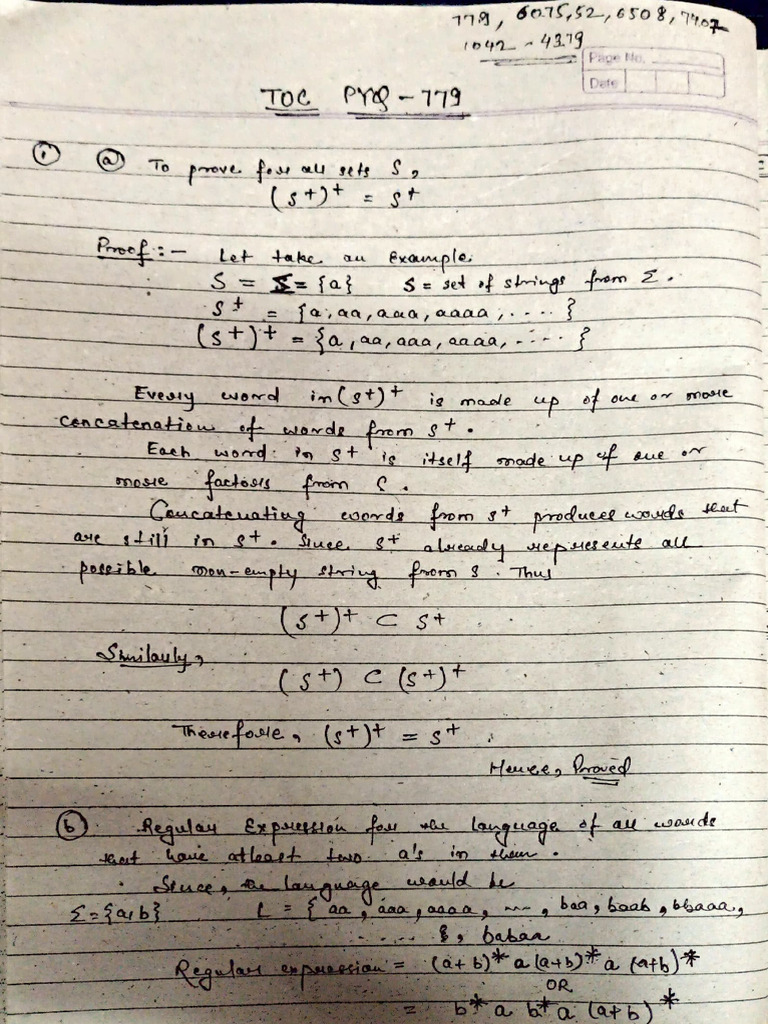 779, 6075, 52, 6508, 7407
1042 - 4379
Page No.
Date
TOC PYQ - 779
① ⓐ To prove for all sets S,
(S+)+ = S+
Proof :- Let take an Example.
S = {a} S = set of strings from Σ.
S+ = {a, aa, aaa, aaaa, .... }
(S+)+ = {a, aa, aaa, aaaa, ..... }
Every word in (S+)+ is made up of one or more
concatenation of words from S+.
Each word in S+ is itself made up of one or
more factors from S.
Concatenating words from S+ produces words that
are still in S+. Since S+ already represents all
possible non-empty string from S. Thus
(S+)+ ⊂ S+
Similarly,
(S+) ⊂ (S+)+
Therefore, (S+)+ = S+.
Hence, Proved
ⓑ Regular Expression for the language of all words
that have atleast two a's in them.
Since, the language would be
Σ={a,b} L = { aa, aaa, aaaa, ---, baa, baab, bbaaa,
..... }, babaa
Regular expression = (a+b)* a (a+b)* a (a+b)*
OR
= b* a b* a (a+b)*